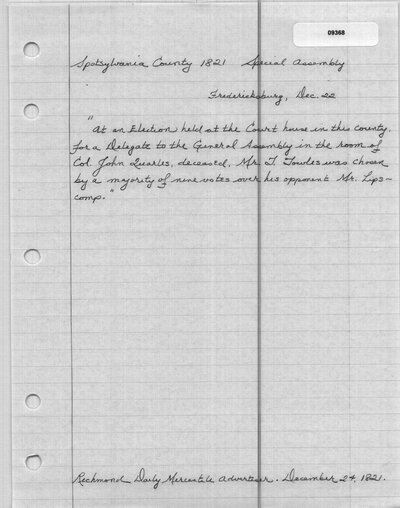 09368
Spotsylvania County 1821 Special Assembly
Fredericksburg, Dec. 22
"At an Election held at the Court house in this county,
for a Delegate to the General Assembly in the room of
Col. John Quarles, deceased, Mr. T. Towles was chosen
by a majority of nine votes over his opponent Mr. Lips-
comp."
Richmond Daily Mercantile Advertiser. December 24, 1821.